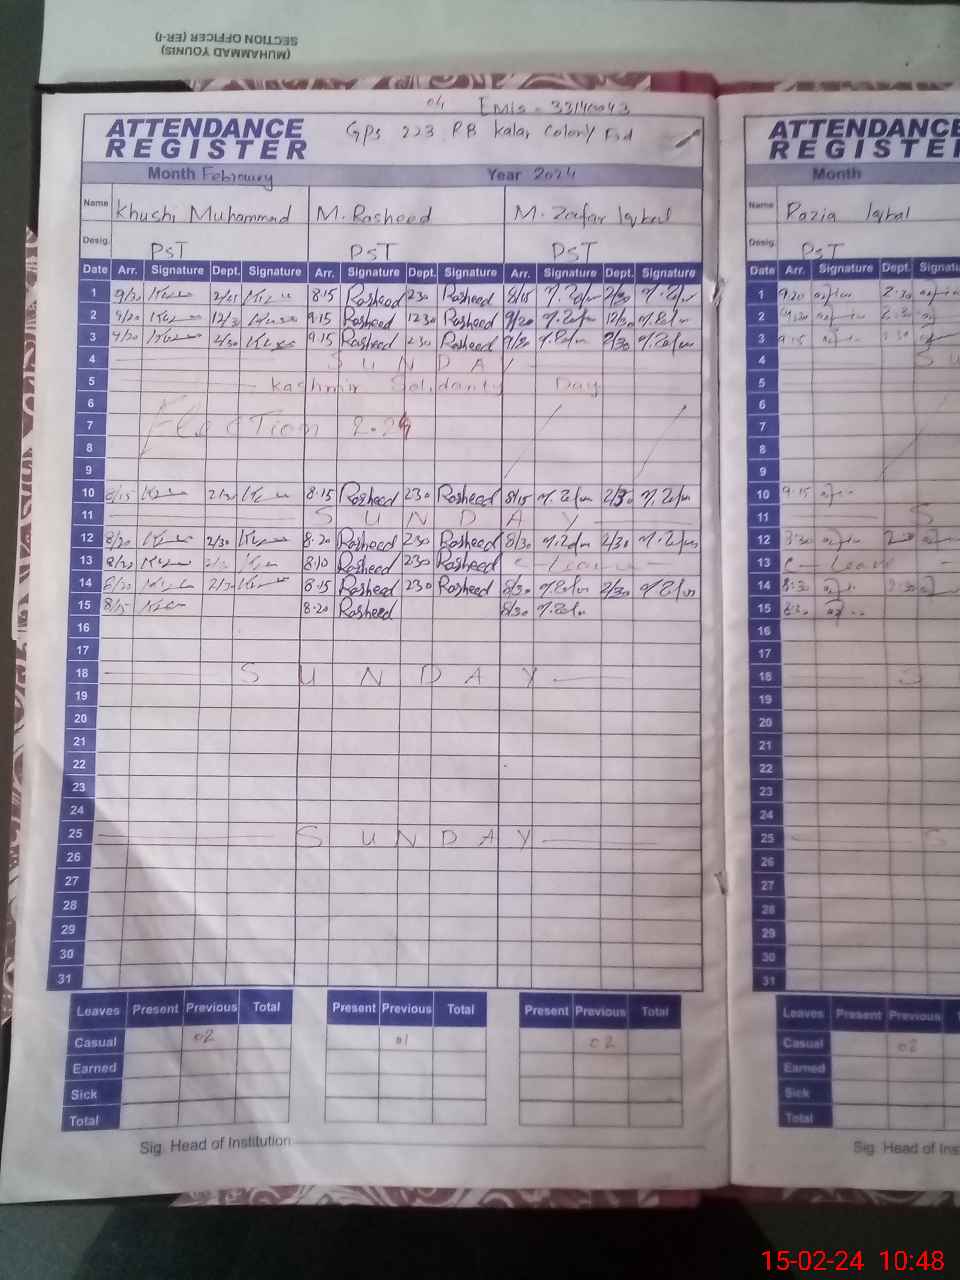 (MUHAMMAD YOUNIS)
SECTION OFFICER (ER-I)
04 EMIS = 33140043
ATTENDANCE REGISTER GPS 223 RB Kalar Colony Fsd
Month February Year 2024
Name Khushi Muhammad M. Rasheed M. Zafar Iqbal
Desig. PST PST PST
Date Arr. Signature Dept. Signature Arr. Signature Dept. Signature Arr. Signature Dept. Signature
1 9/20 8.15 Rasheed 230 Rasheed 8/15 2/30
2 9/20 12/30 9.15 Rasheed 1230 Rasheed 9/20 12/30
3 9/20 2/30 9.15 Rasheed 230 Rasheed 9/30 2/30
4 SUNDAY
5 Kashmir Solidarity Day
6
7 Election 2.24
8
9
10 8/15 2/30 8.15 Rasheed 230 Rasheed 8/15 2/30
11 SUNDAY
12 8/20 2/30 8.20 Rasheed 230 Rasheed 8/30 2/30
13 8/20 8.10 Rasheed 230 Rasheed C-Leave
14 8/20 2/30 8.15 Rasheed 230 Rasheed 8/30 2/30
15 8/15 8.20 Rasheed 8/30
16
17
18 SUNDAY
19
20
21
22
23
24
25 SUNDAY
26
27
28
29
30
31
Leaves Present Previous Total Present Previous Total Present Previous Total
Casual 02 01 02
Earned
Sick
Total
Sig. Head of Institution
ATTENDANCE
REGISTER
Month
Name Razia Iqbal
Desig. PST
Date Arr. Signature Dept.
1 9.20 2:30
2 2:30
3 9.15 2:30
4 SU
5
6
7
8
9
10 9.15
11 S
12 8.30
13 C-Leave
14 8:30 2:30
15 8:30
16
17
18 S
19
20
21
22
23
24
25 S
26
27
28
29
30
31
Leaves Present Previous
Casual 02
Earned
Sick
Total
Sig. Head of Ins
15-02-24 10:48